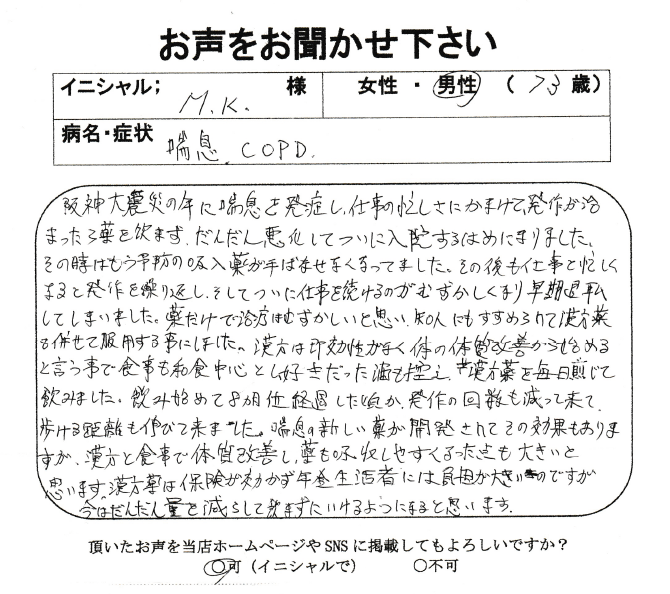 お声をお聞かせ下さい
イニシャル; M.K. 様 女性・男性 (73歳)
病名・症状 喘息. COPD.
阪神大震災の年に喘息を発症し、仕事の忙しさにかまけて、発作が治
まったら薬を飲まず、だんだん悪化してついに入院するはめになりました。
その時はもう予防の吸入薬が手ばなせなくなってました。その後も仕事と忙しく
なると発作を繰り返し、そしてついに仕事を続けるのがむずかしくなり早期退職
してしまいました。薬だけで治療はむずかしいと思い、知人にもすすめられて漢方薬
も併せて服用する事にしました。漢方は即効性がなく体の体質改善から始める
と言う事で食事も和食中心とし好きだった酒も控え、漢方薬を毎日煎じて
飲みました。飲み始めて8ヵ月位経過した頃か、発作の回数も減って来て、
歩ける距離も伸びて来ました。喘息の新しい薬が開発されてその効果もありま
すが、漢方と食事で体質改善し、薬も吸収しやすくなった点も大きいと
思います。漢方薬は保険が効かず年金生活者には負担が大きいのですが
今はだんだん量を減らして飲まずにいけるようになると思います。
頂いたお声を当店ホームページやSNSに掲載してもよろしいですか?
○可(イニシャルで) ○不可